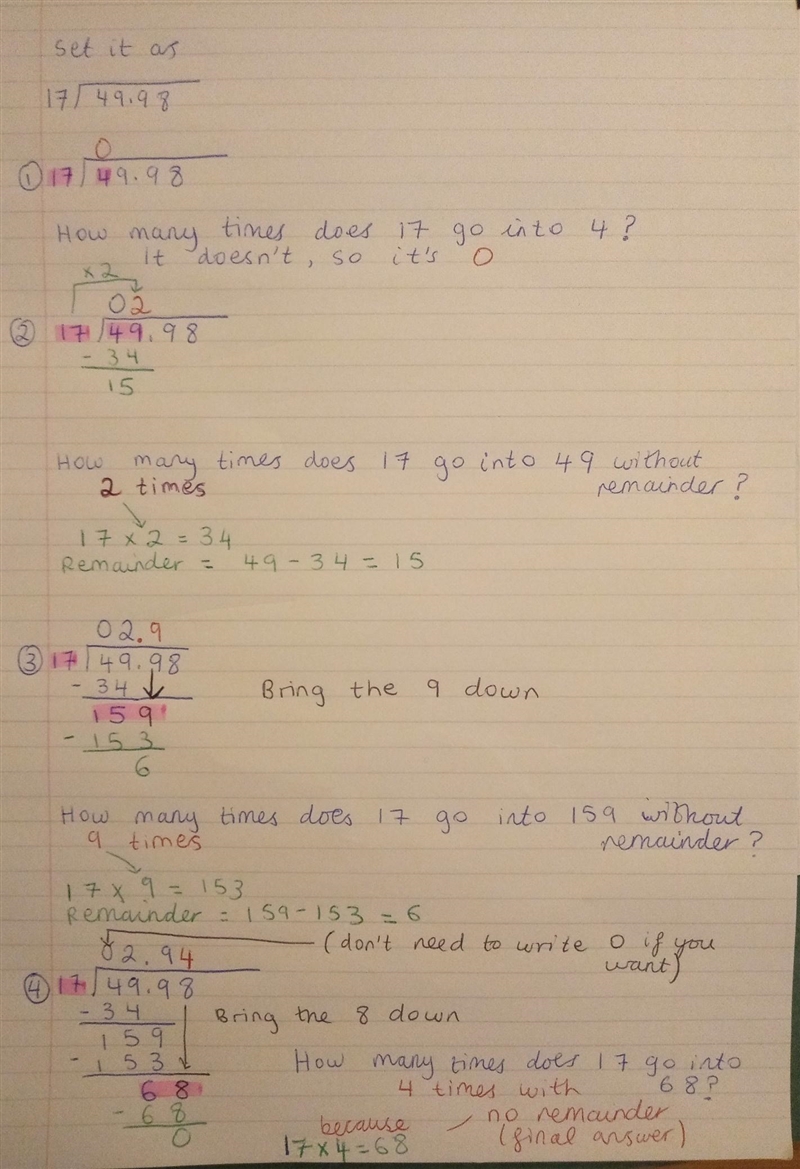 Set it as
17 49.98
0
① 17 49.98
How many times does 17 go into 4?
It doesn't, so it's 0
×2
02
② 17 49.98
- 34
15
How many times does 17 go into 49 without
2 times remainder?
17 × 2 = 34
Remainder = 49 - 34 = 15
02.9
③ 17 49.98
- 34 Bring the 9 down
159
- 153
6
How many times does 17 go into 159 without
9 times remainder?
17 × 9 = 153
Remainder = 159 - 153 = 6
02.94 (don't need to write 0 if you
want)
④ 17 49.98
- 34 Bring the 8 down
159
- 153 How many times does 17 go into
68 4 times with 68?
- 68 because no remainder
0 17×4=68 (final answer)